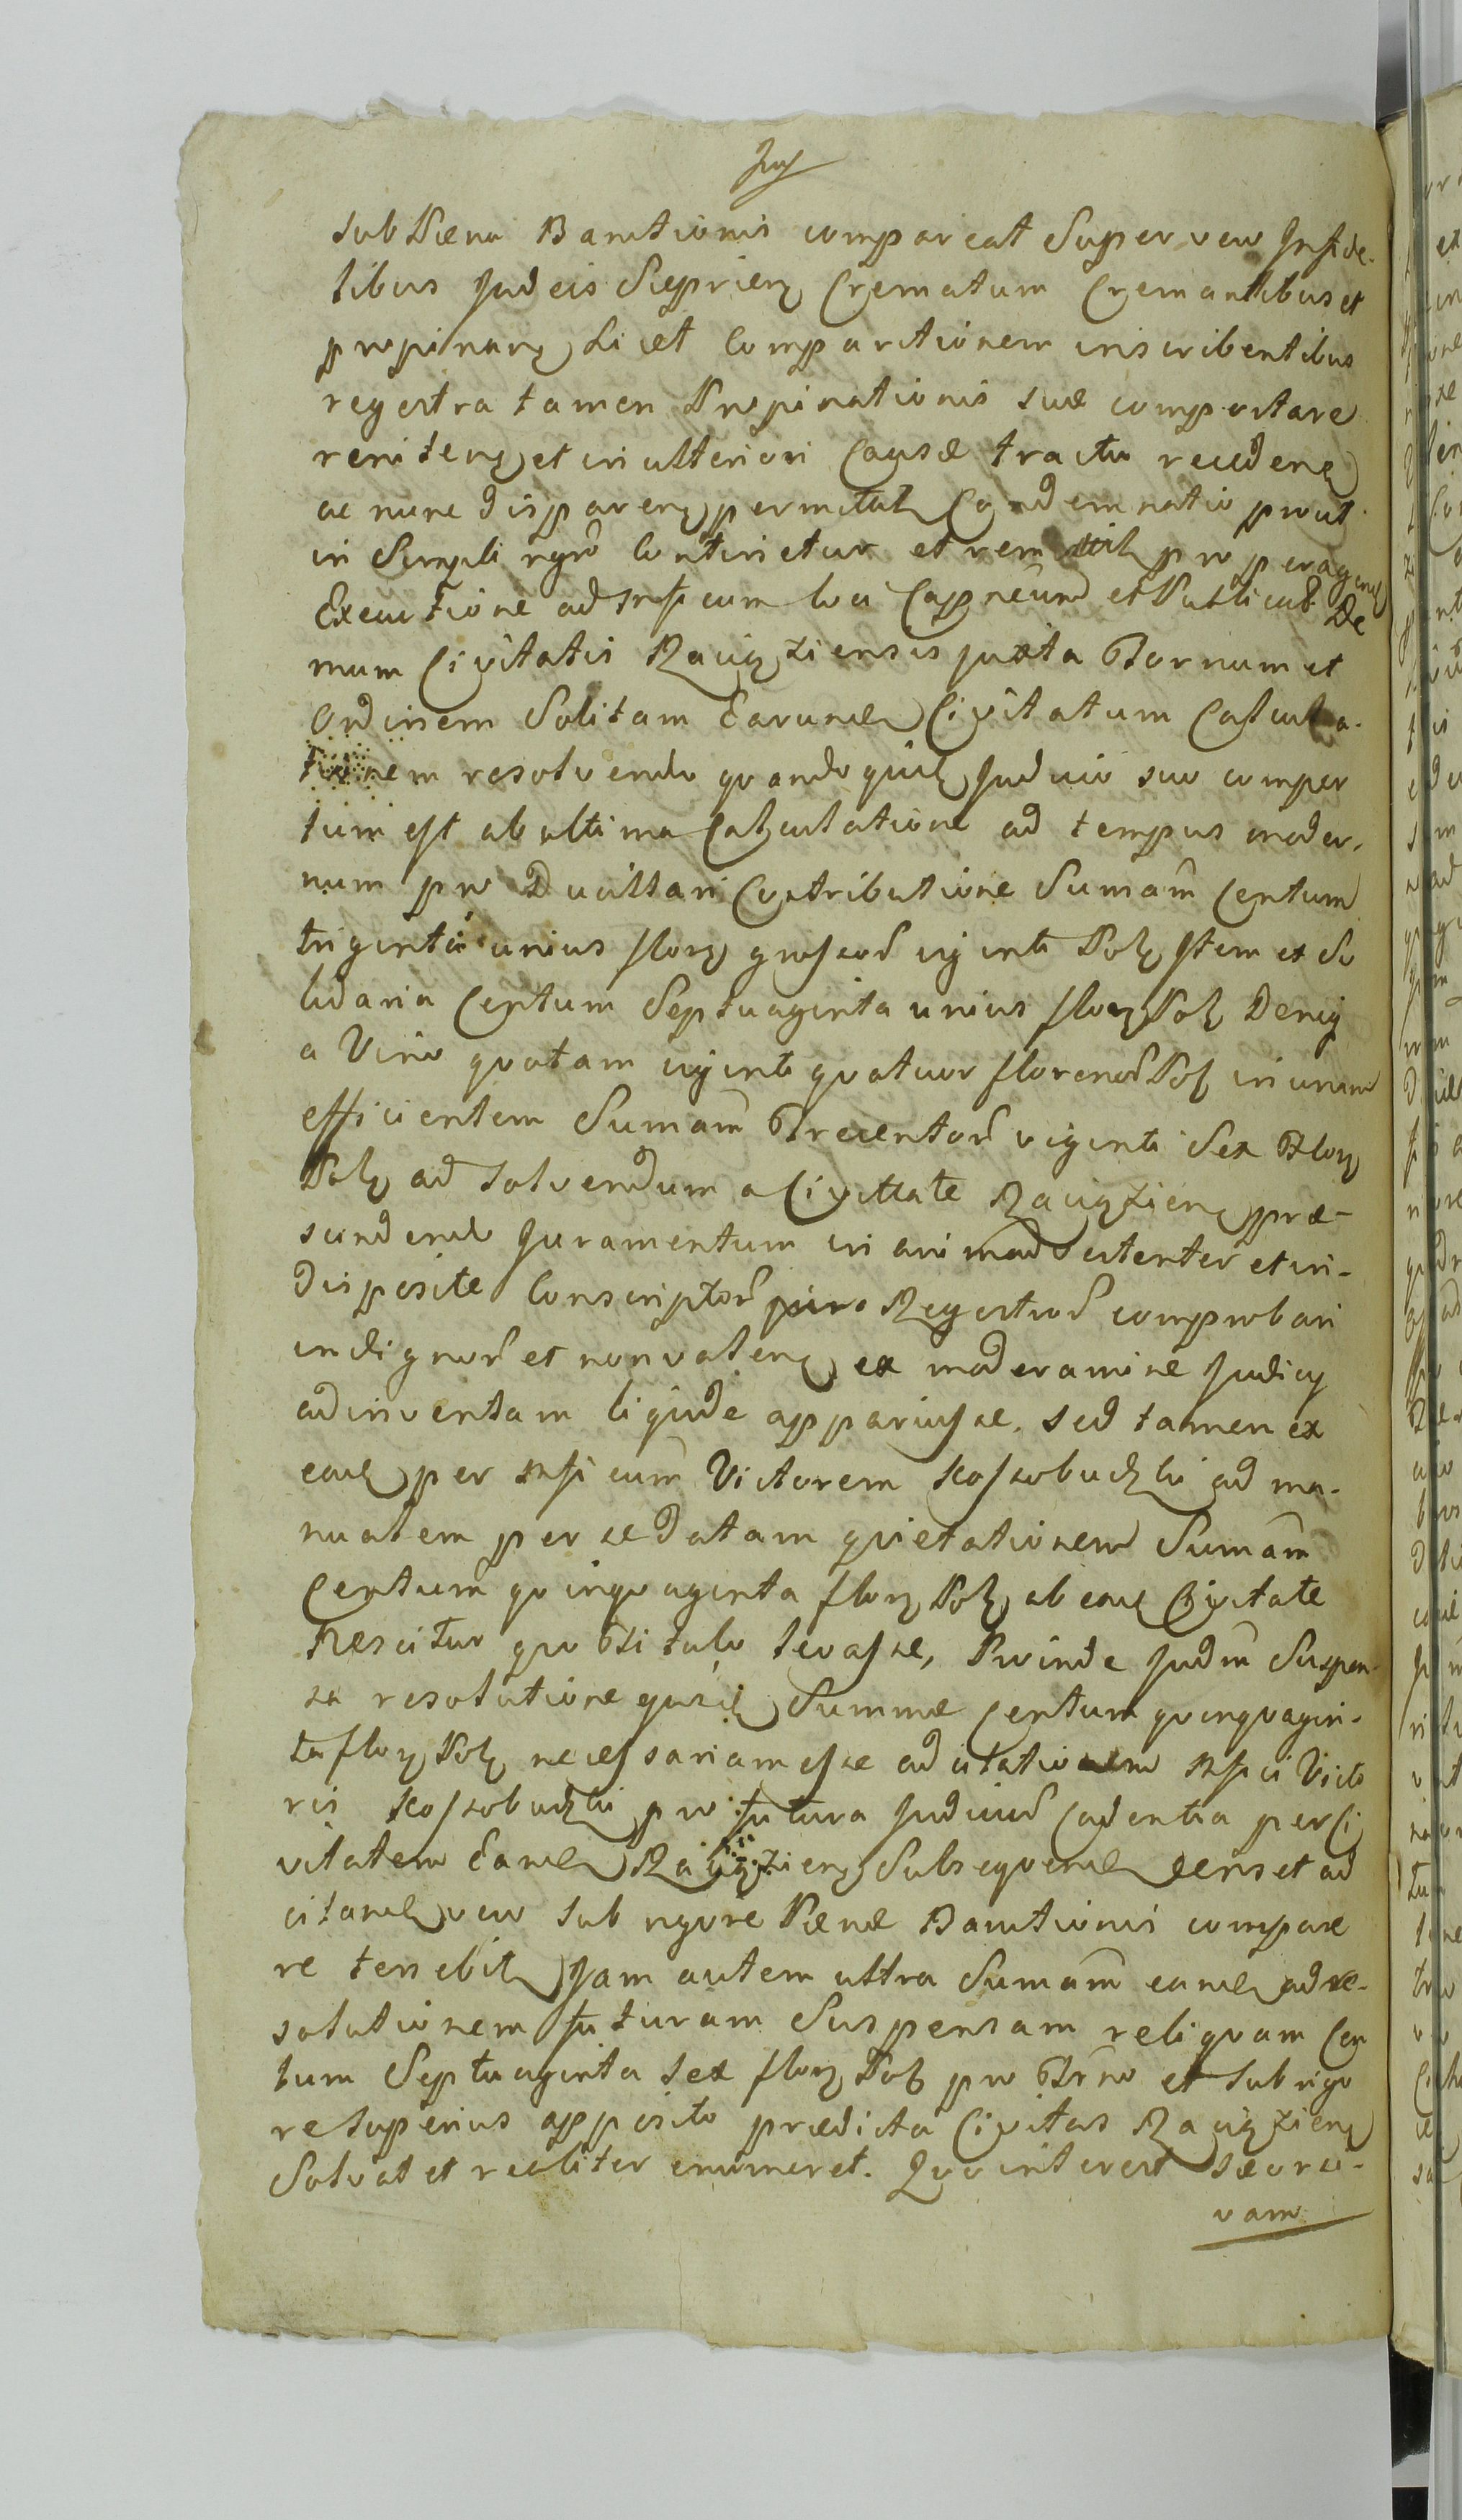 sub Pæna Banitionis compareat Super vero Infide-
libus Judeis Sieprien Crematum Cremantibus et
propinan licet Comparitionem inscribentibus
regestra tamen Propinationis suæ comportare
reniten et in ulteriori Causæ tractu receden
ac nunc disparen permittit Condemnatio prout
in Simpli rgro Continetur et remittit pro peragen
Executione ad Mfficum loci Capneum et Publicat De
mum Civitatis Raciąziensis juxta Tornum et
Ordinem Solitam Earund Civitatum Calcula-
tionem resolvendo quandoquid Judicio suo comper
tum est ab ultima Calculatione ad tempus moder-
num pro Ducillari Contributione Sumam Centum
triginta unius flor grossor viginti Pol Item ex So
lidaria Centum Septuaginta unius flor Pol Deniq
a Vino quotam viginti quatuor florenor Pol in unum
efficientem Sumam Trecentor viginti Sex Flor
Pol ad solvendum a Civittate Raciązien præ-
scindendo Juramentum in animadvertenter et in-
disposite Conscriptor Regestror comprobari
indignor et non valen ex moderamine Judicy
adinventam liquide apparuisse, sed tamen ex
ead per Mfficum Victorem Kossobudzki ad ma-
nualem per se datam quietationem Sumam
Centum quinquaginta flor Pol ab ead Civitate
Nescitur quo Titulo levasse, Proinde Judm Suspen-
sa resolutione ejusd Summæ Centum quinquagin-
ta flor Pol necessariam esse ad citationem Mffici Victo
ris Kossobudzki pro futura Judicior Cadentia per Ci
vitatem Eand Raciązien Subsequend censet ad
citand vero sub rigore Pænæ Banitionis compare
re tenebit Jam autem ultra Sumam eand ad re-
solutionem futuram Suspensam reliquam Cen
tum Septuaginta sex flor Pol pro Trno et sub rigo
re superius apposito prædicta Civitas Raciązien
Solvat et realiter enumeret. Quo interest sæcro-
vam